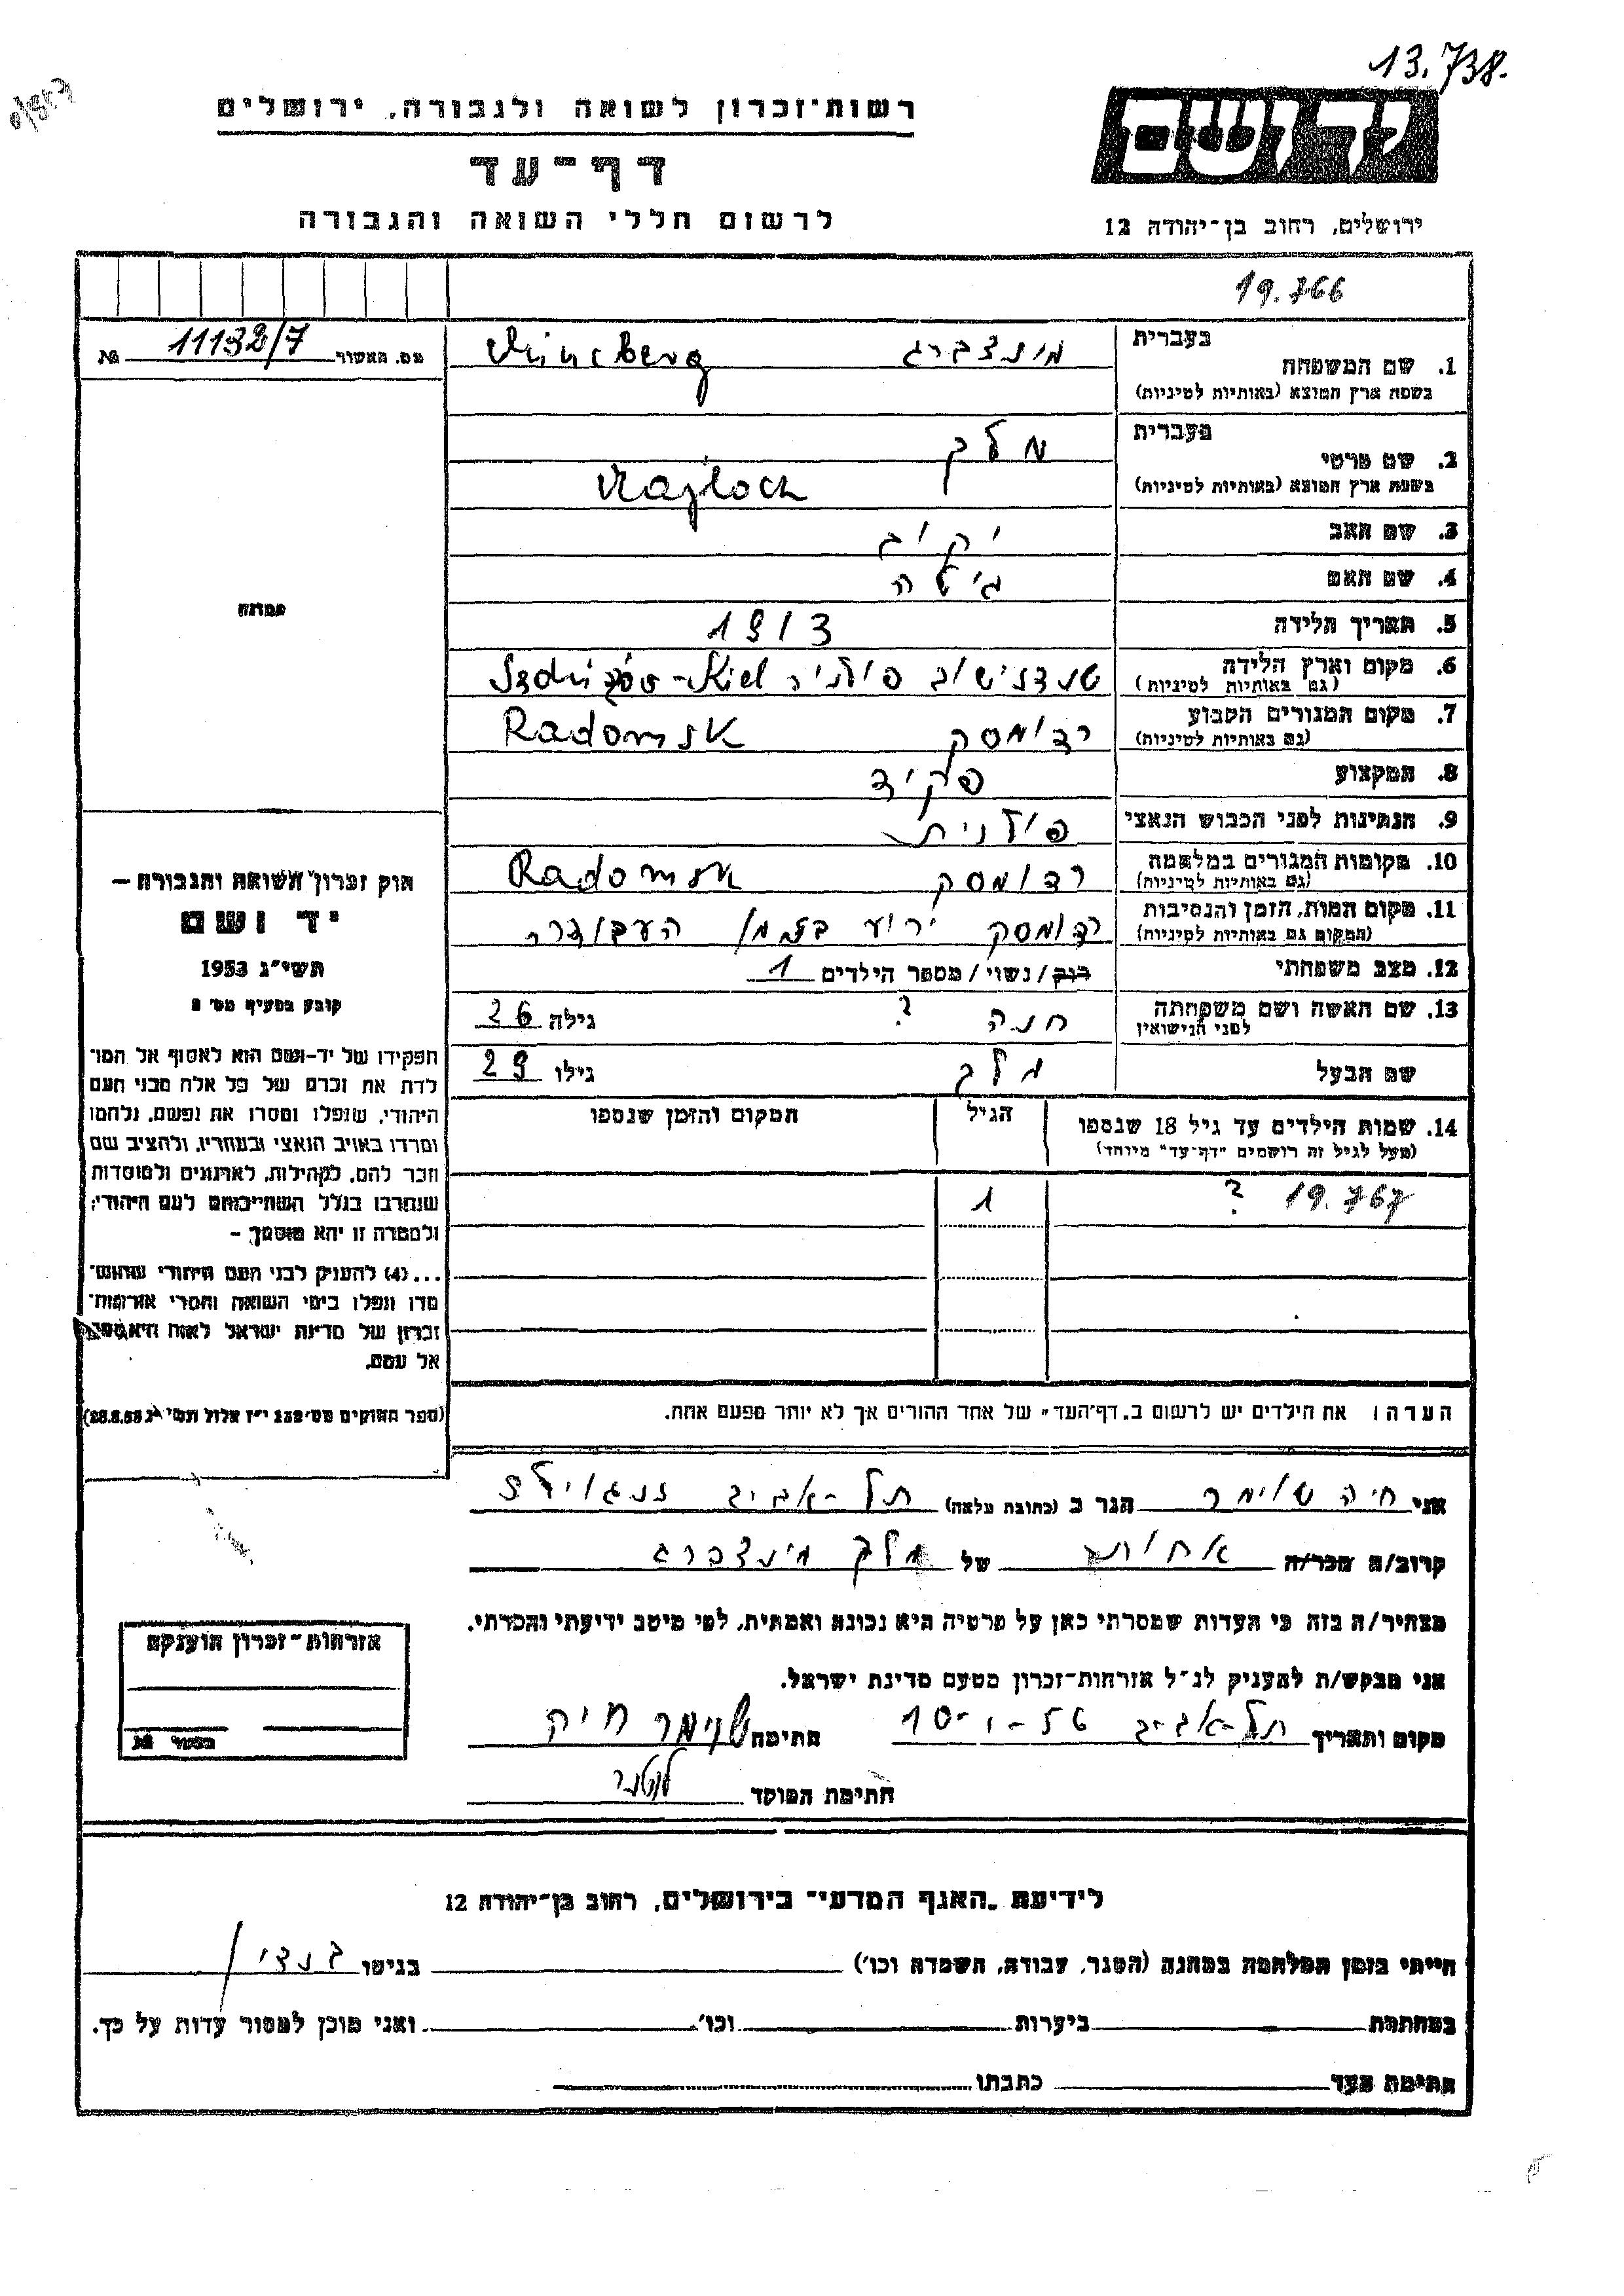 13.738.
רשות־זכרון לשואה ולגבורה, ירושלים
יד ושם
דף־עד
לרשום חללי השואה והגבורה
ירושלים, רחוב בן־יהודה 12
19.766
מס. האשור 11132/7 №
1. שם המשפחה בעברית מינצברג Mincberg
בשפת ארץ המוצא (באותיות לטיניות)
2. שם פרטי בעברית מלך
בשפת ארץ המוצא (באותיות לטיניות) Majloch
3. שם האב
4. שם האם גיטה
5. תאריך הלידה 1913
6. מקום וארץ הלידה
(גם באותיות לטיניות)
7. מקום המגורים הקבוע רדומסק Radomsk
(גם באותיות לטיניות)
8. המקצוע פקיד
9. הנתינות לפני הכבוש הנאצי פולנית
10. מקומות המגורים במלחמה רדומסק Radomsk
(גם באותיות לטיניות)
11. מקום המות, הזמן והנסיבות רדומסק ירוע בזמן העבודה
(המקום גם באותיות לטיניות)
12. מצב משפחתי רווק/נשוי/מספר הילדים 1
13. שם האשה ושם משפחתה חנה ? גילה 26
לפני הנישואין
שם הבעל מלך גילו 29
14. שמות הילדים עד גיל 18 שנספו הגיל המקום והזמן שנספו
(מעל לגיל זה רושמים "דף־עד" מיוחד)
19.767 ? 1
הערה: את הילדים יש לרשום ב„דף־העד" של אחד ההורים אך לא יותר מפעם אחת.
תמונה
חוק זכרון השואה והגבורה —
יד ושם
תשי"ג 1953
קובע בסעיף מס׳ 2
תפקידו של יד-ושם הוא לאסוף אל המו־
לדת את זכרם של כל אלה מבני העם
היהודי, שנפלו ומסרו את נפשם, נלחמו
ומרדו באויב הנאצי ובעוזריו, ולהציב שם
וזכר להם, לקהילות, לארגונים ולמוסדות
שנחרבו בגלל השתייכותם לעם היהודי;
ולמטרה זו יהא מוסמך —
...(4) להעניק לבני העם היהודי שהוש־
מדו ונפלו בימי השואה והמרי אזרחות־
זכרון של מדינת ישראל לאות היאספם
אל עמם.
(ספר החוקים מס׳ 132 י"ז אלול תשי"ג 28.8.53)
אני חיה שוימר הגר ב (כתובת מלאה) תל-אביב
קרוב/ה מכר/ה אחות של מלך מינצברג
מצהיר/ה בזה כי העדות שמסרתי כאן על פרטיה היא נכונה ואמתית, לפי מיטב ידיעתי והכרתי.
אני מבקש/ת להעניק לנ״ל אזרחות־זכרון מטעם מדינת ישראל.
מקום ותאריך תל-אביב 10-1-56 חתימה שוימר חיה
חתימת הפוקד
אזרחות־זכרון הוענקה
לידיעת „האגף המדעי" בירושלים, רחוב בן־יהודה 12
הייתי בזמן המלחמה במחנה (הסגר, עבודה, השמדה וכו׳) בגיטו
במחתרת ביערות וכו׳ ואני מוכן למסור עדות על כך.
חתימת העד כתבתו